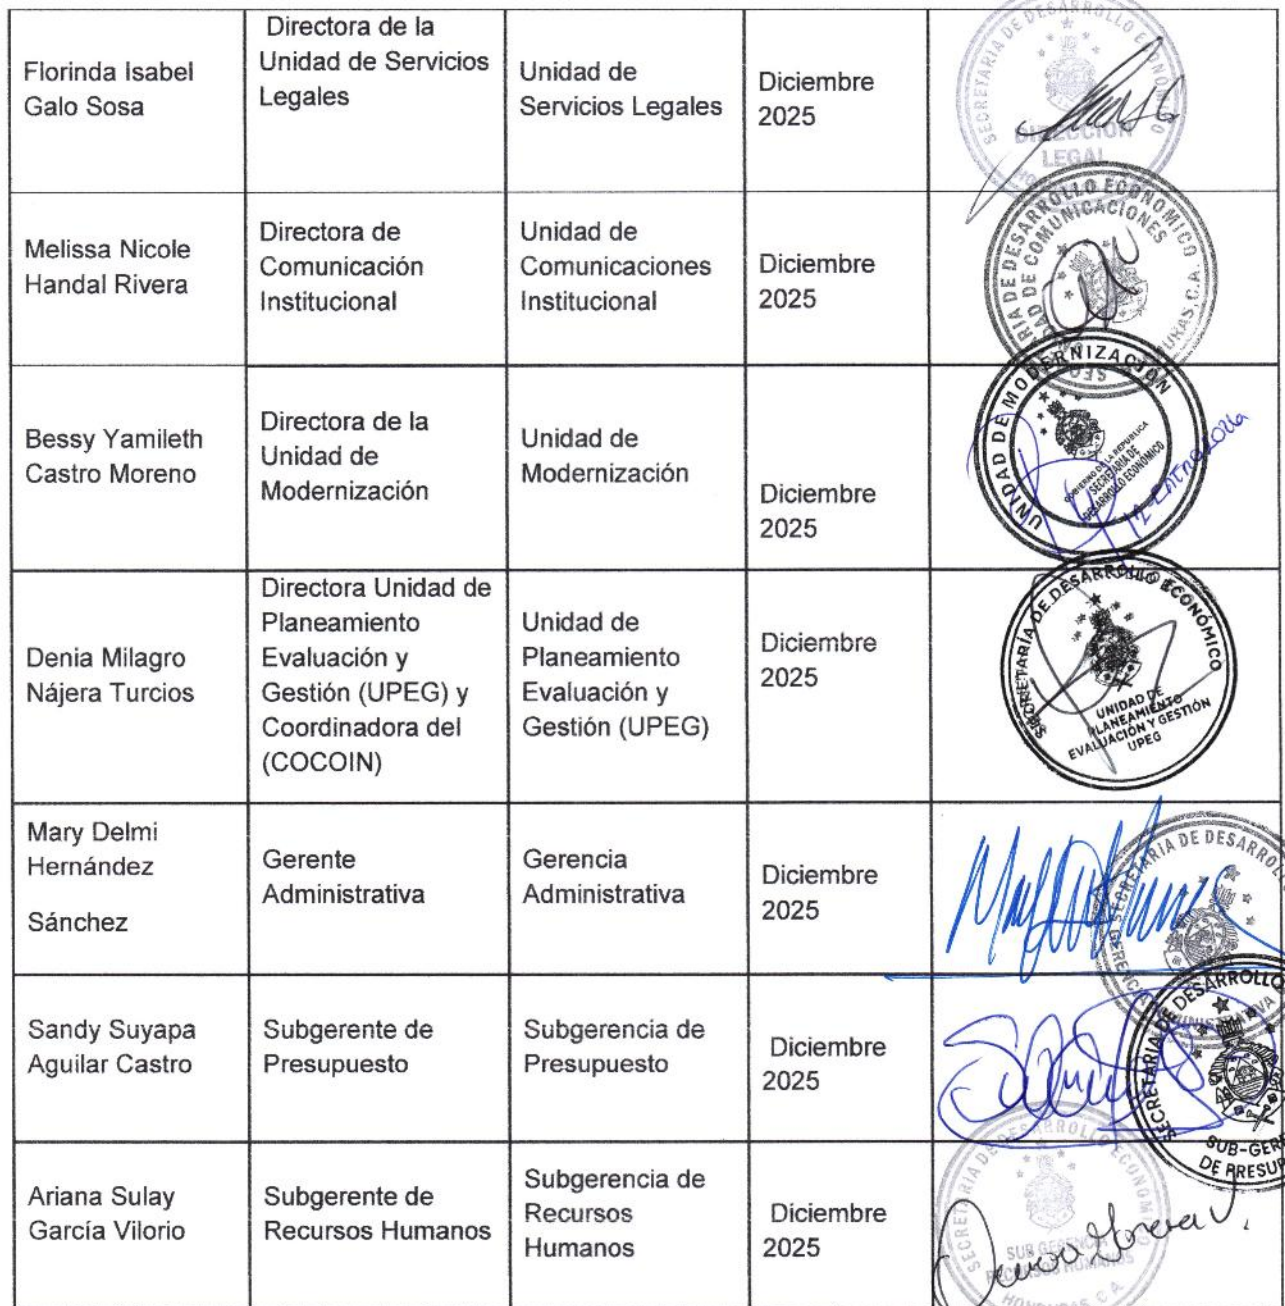 Florinda Isabel
Galo Sosa
Directora de la
Unidad de Servicios
Legales
Unidad de
Servicios Legales
Diciembre
2025
SECRETARIA DE DESARROLLO ECONOMICO
DIRECCION
LEGAL
Melissa Nicole
Handal Rivera
Directora de
Comunicación
Institucional
Unidad de
Comunicaciones
Institucional
Diciembre
2025
DE COMUNICACIONES
Bessy Yamileth
Castro Moreno
Directora de la
Unidad de
Modernización
Unidad de
Modernización
Diciembre
2025
UNIDAD DE MODERNIZACIÓN
GOBIERNO DE LA REPUBLICA
SECRETARIA DE
DESARROLLO ECONOMICO
Denia Milagro
Nájera Turcios
Directora Unidad de
Planeamiento
Evaluación y
Gestión (UPEG) y
Coordinadora del
(COCOIN)
Unidad de
Planeamiento
Evaluación y
Gestión (UPEG)
Diciembre
2025
SECRETARÍA DE DESARROLLO ECONÓMICO
UNIDAD DE
PLANEAMIENTO
EVALUACIÓN Y GESTIÓN
UPEG
Mary Delmi
Hernández
Sánchez
Gerente
Administrativa
Gerencia
Administrativa
Diciembre
2025
Sandy Suyapa
Aguilar Castro
Subgerente de
Presupuesto
Subgerencia de
Presupuesto
Diciembre
2025
SECRETARIA DE DESARROLLO
SUB-GER
DE PRESUP
Ariana Sulay
García Vilorio
Subgerente de
Recursos Humanos
Subgerencia de
Recursos
Humanos
Diciembre
2025
SECRETARIA DE DESARROLLO ECONOM
SUB GERENCIA
RECURSOS HUMANOS
HONDURAS C.A.